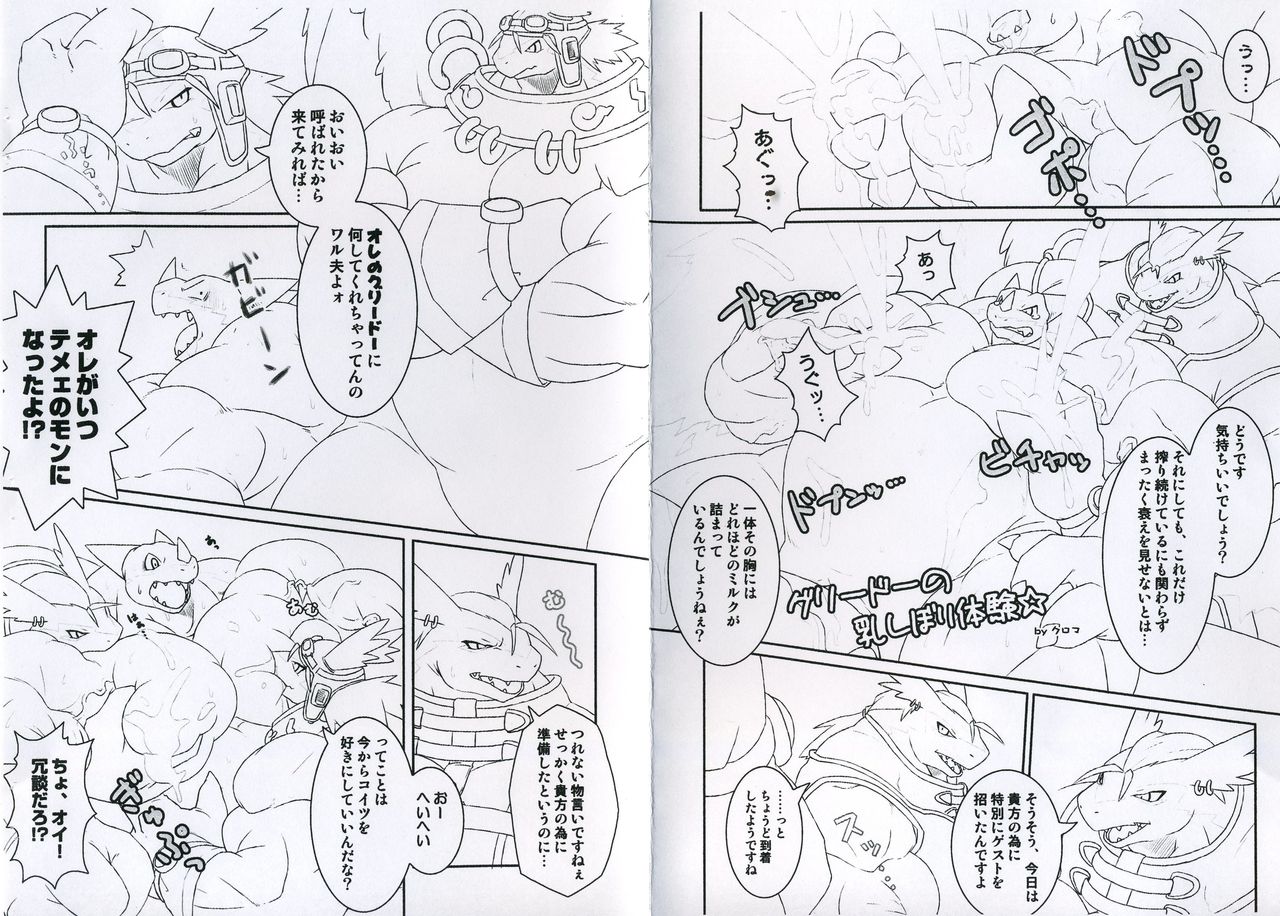 うっ…
ドプッ…
ゴポ…
あぐっ…
あっ
ブシュ…
うぐッ…
どうです
気持ちいいでしょう?
それにしても、これだけ
搾り続けているにも関わらず
まったく衰えを見せないとは…
ビチャッ
ドプンッ…
一体その胸には
どれほどのミルクが
詰まって
いるんでしょうねぇ?
グリードーの
乳しぼり体験☆
by クロマ
そうそう、今日は
貴方の為に
特別にゲストを
招いたんですよ
……っと
ちょうど到着
したようですね
スッ…
おいおい
呼ばれたから
来てみれば…
オレのグリードーに
何してくれちゃってんの
ワル夫よォ
ガビーン
オレがいつ
テメェのモンに
なったよ!?
む〜
つれない物言いですねぇ
せっかく貴方の為に
準備したというのに…
おー
へいへい
ってことは
今からコイツを
好きにしていいんだな?
あっ
あむ
ぎゅぷっ
ちょ、オイ!
冗談だろ!?